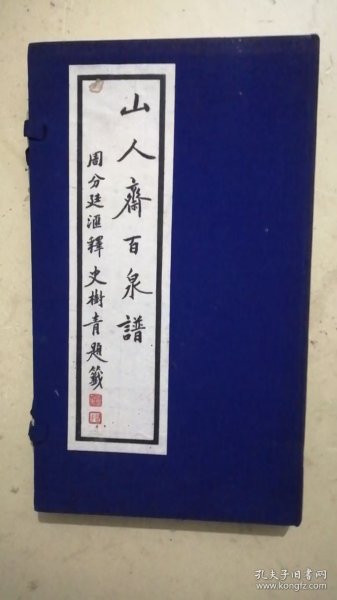 山人齋百泉譜
周分廷滙釋 史樹青題籤
孔夫子旧书网
book.kongfz.com